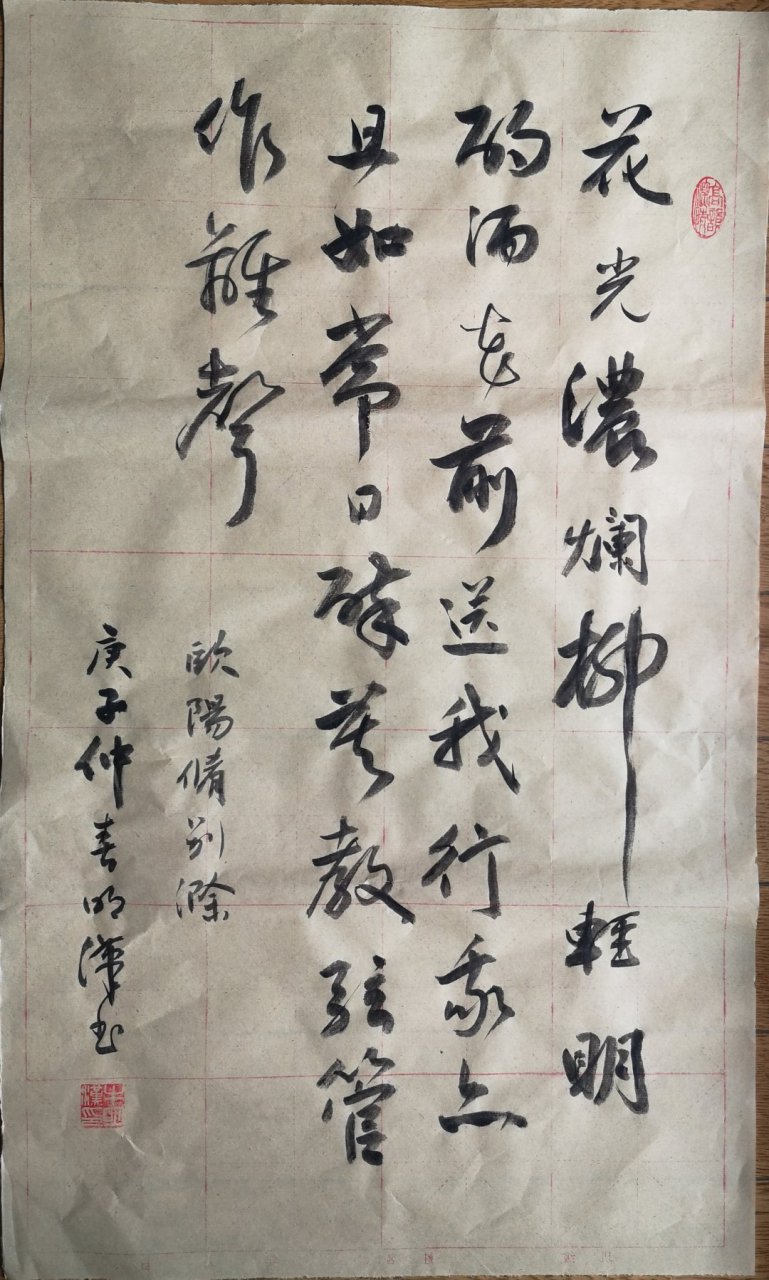 花光濃爛柳輕明
酌酒花前送我行我亦
且如常日醉莫教弦管
作離聲
歐陽脩别滁
庚子仲春明漢书